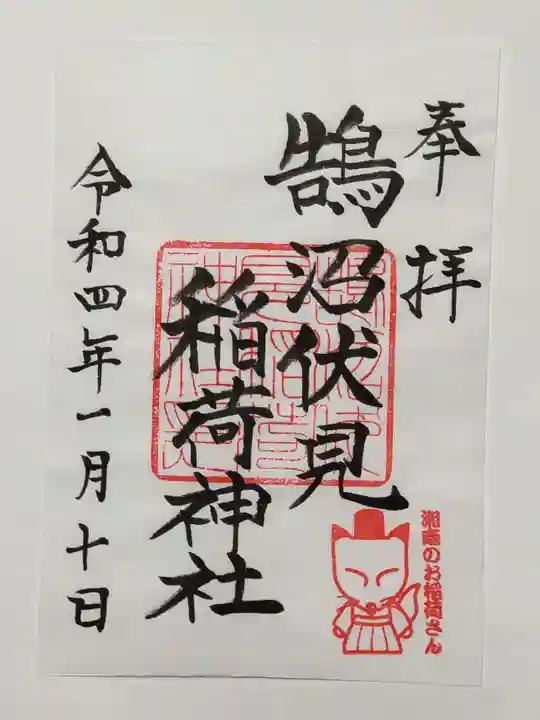 奉拝
鵠沼伏見
稲荷神社
令和四年一月十日
湘南のお稲荷さん